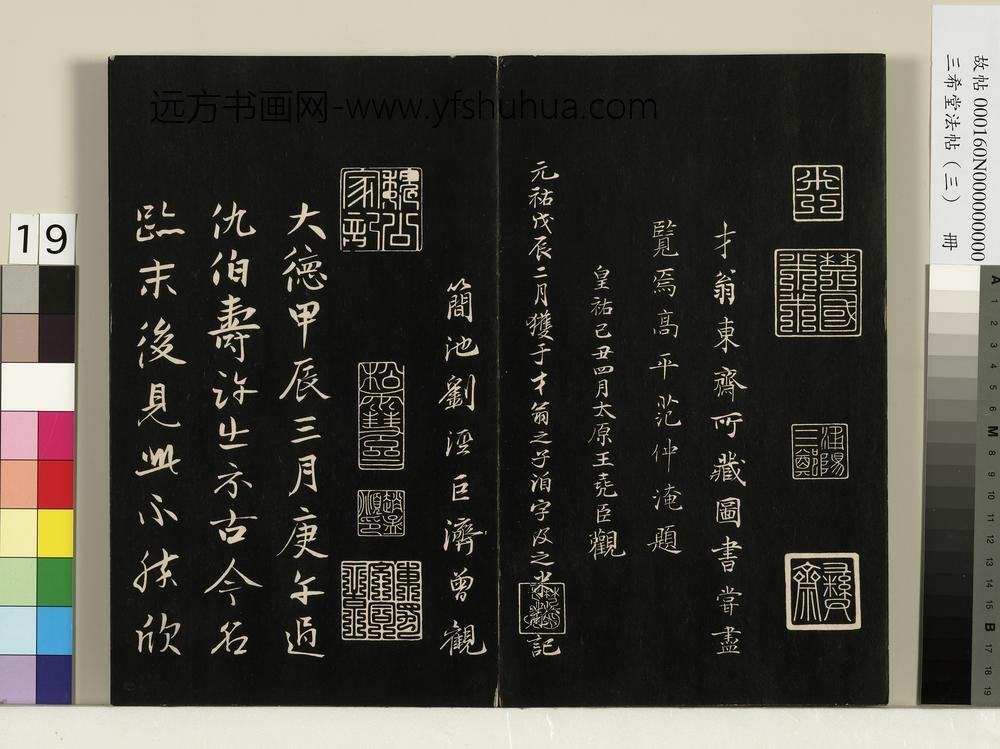 远方书画网-www.yfshuhua.com
故帖 000160N000000000
三希堂法帖（三） 冊
才翁東齋所藏圖書嘗盡
覽焉高平范仲淹題
皇祐己丑四月太原王堯臣觀
元祐戊辰二月獲于才翁之子洎字及之米黻記
簡池劉涇巨濟曾觀
大德甲辰三月庚午過
仇伯壽許出示古今名
跡末後見此不勝欣
19
A 1 2 3 4 5 6 M 8 9 10 11 12 13 14 15 B 17 18 19